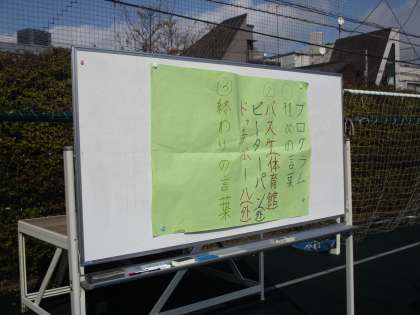 プログラム
①の言葉
②バスケ体育館
ピーターパン(外)
ドッチボール(外)
③終わりの言葉